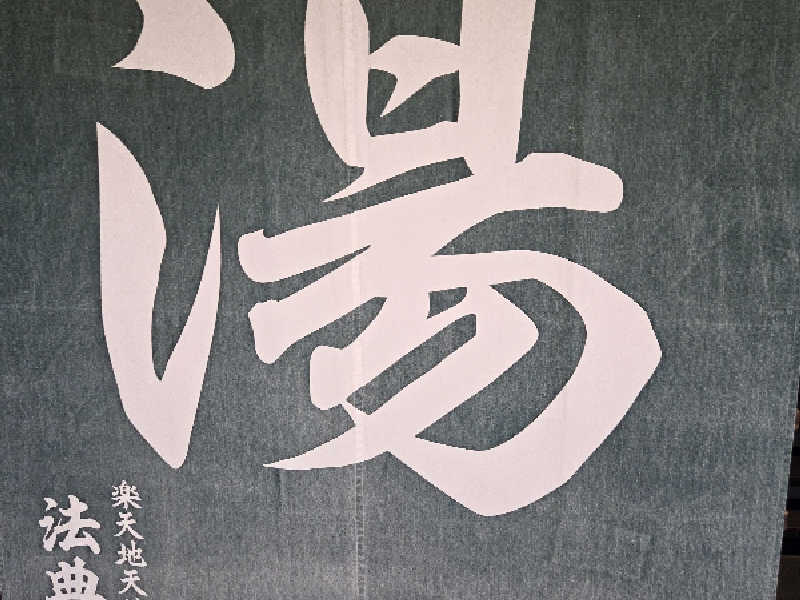 湯
楽天地天
法典